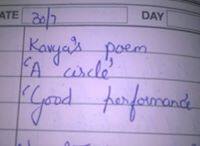 ATE 30/7 DAY
Kavya's poem
'A circle'
"Good performance